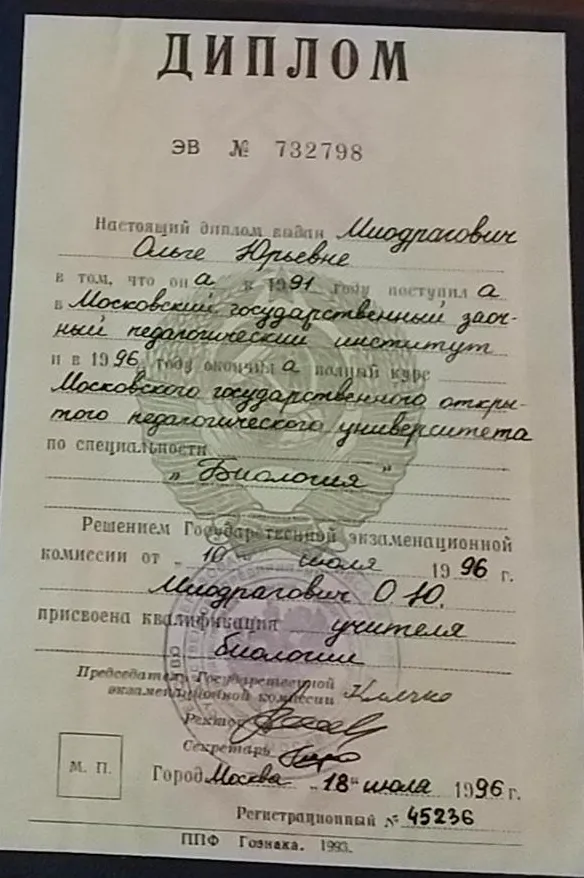 ДИПЛОМ
ЭВ № 732798
Настоящий диплом выдан Миодрагович
Ольге Юрьевне
в том, что он а в 1991 году поступил а
в Московский государственный заоч-
ный педагогический институт
и в 1996 году окончил а полный курс
Московского государственного откры-
того педагогического университета
по специальности
„Биология"
Решением Государственной экзаменационной
комиссии от „10" июля 1996 г.
Миодрагович О Ю.
присвоена квалификация учителя
биологии
Председатель Государственной
экзаменационной комиссии
Ректор
Секретарь
М. П.
Город Москва „18" июля 1996 г.
Регистрационный № 45236
ППФ Гознака. 1993.